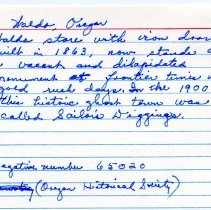 Waldo, Oregon
Waldo store with iron door
built in 1863, now stands a
a vacant and dilapidated
monument of frontier times a
gold rush days. In the 1900
this historic ghost town was
called Sailor Diggings.
negative number 65020
(Oregon Historical Society)